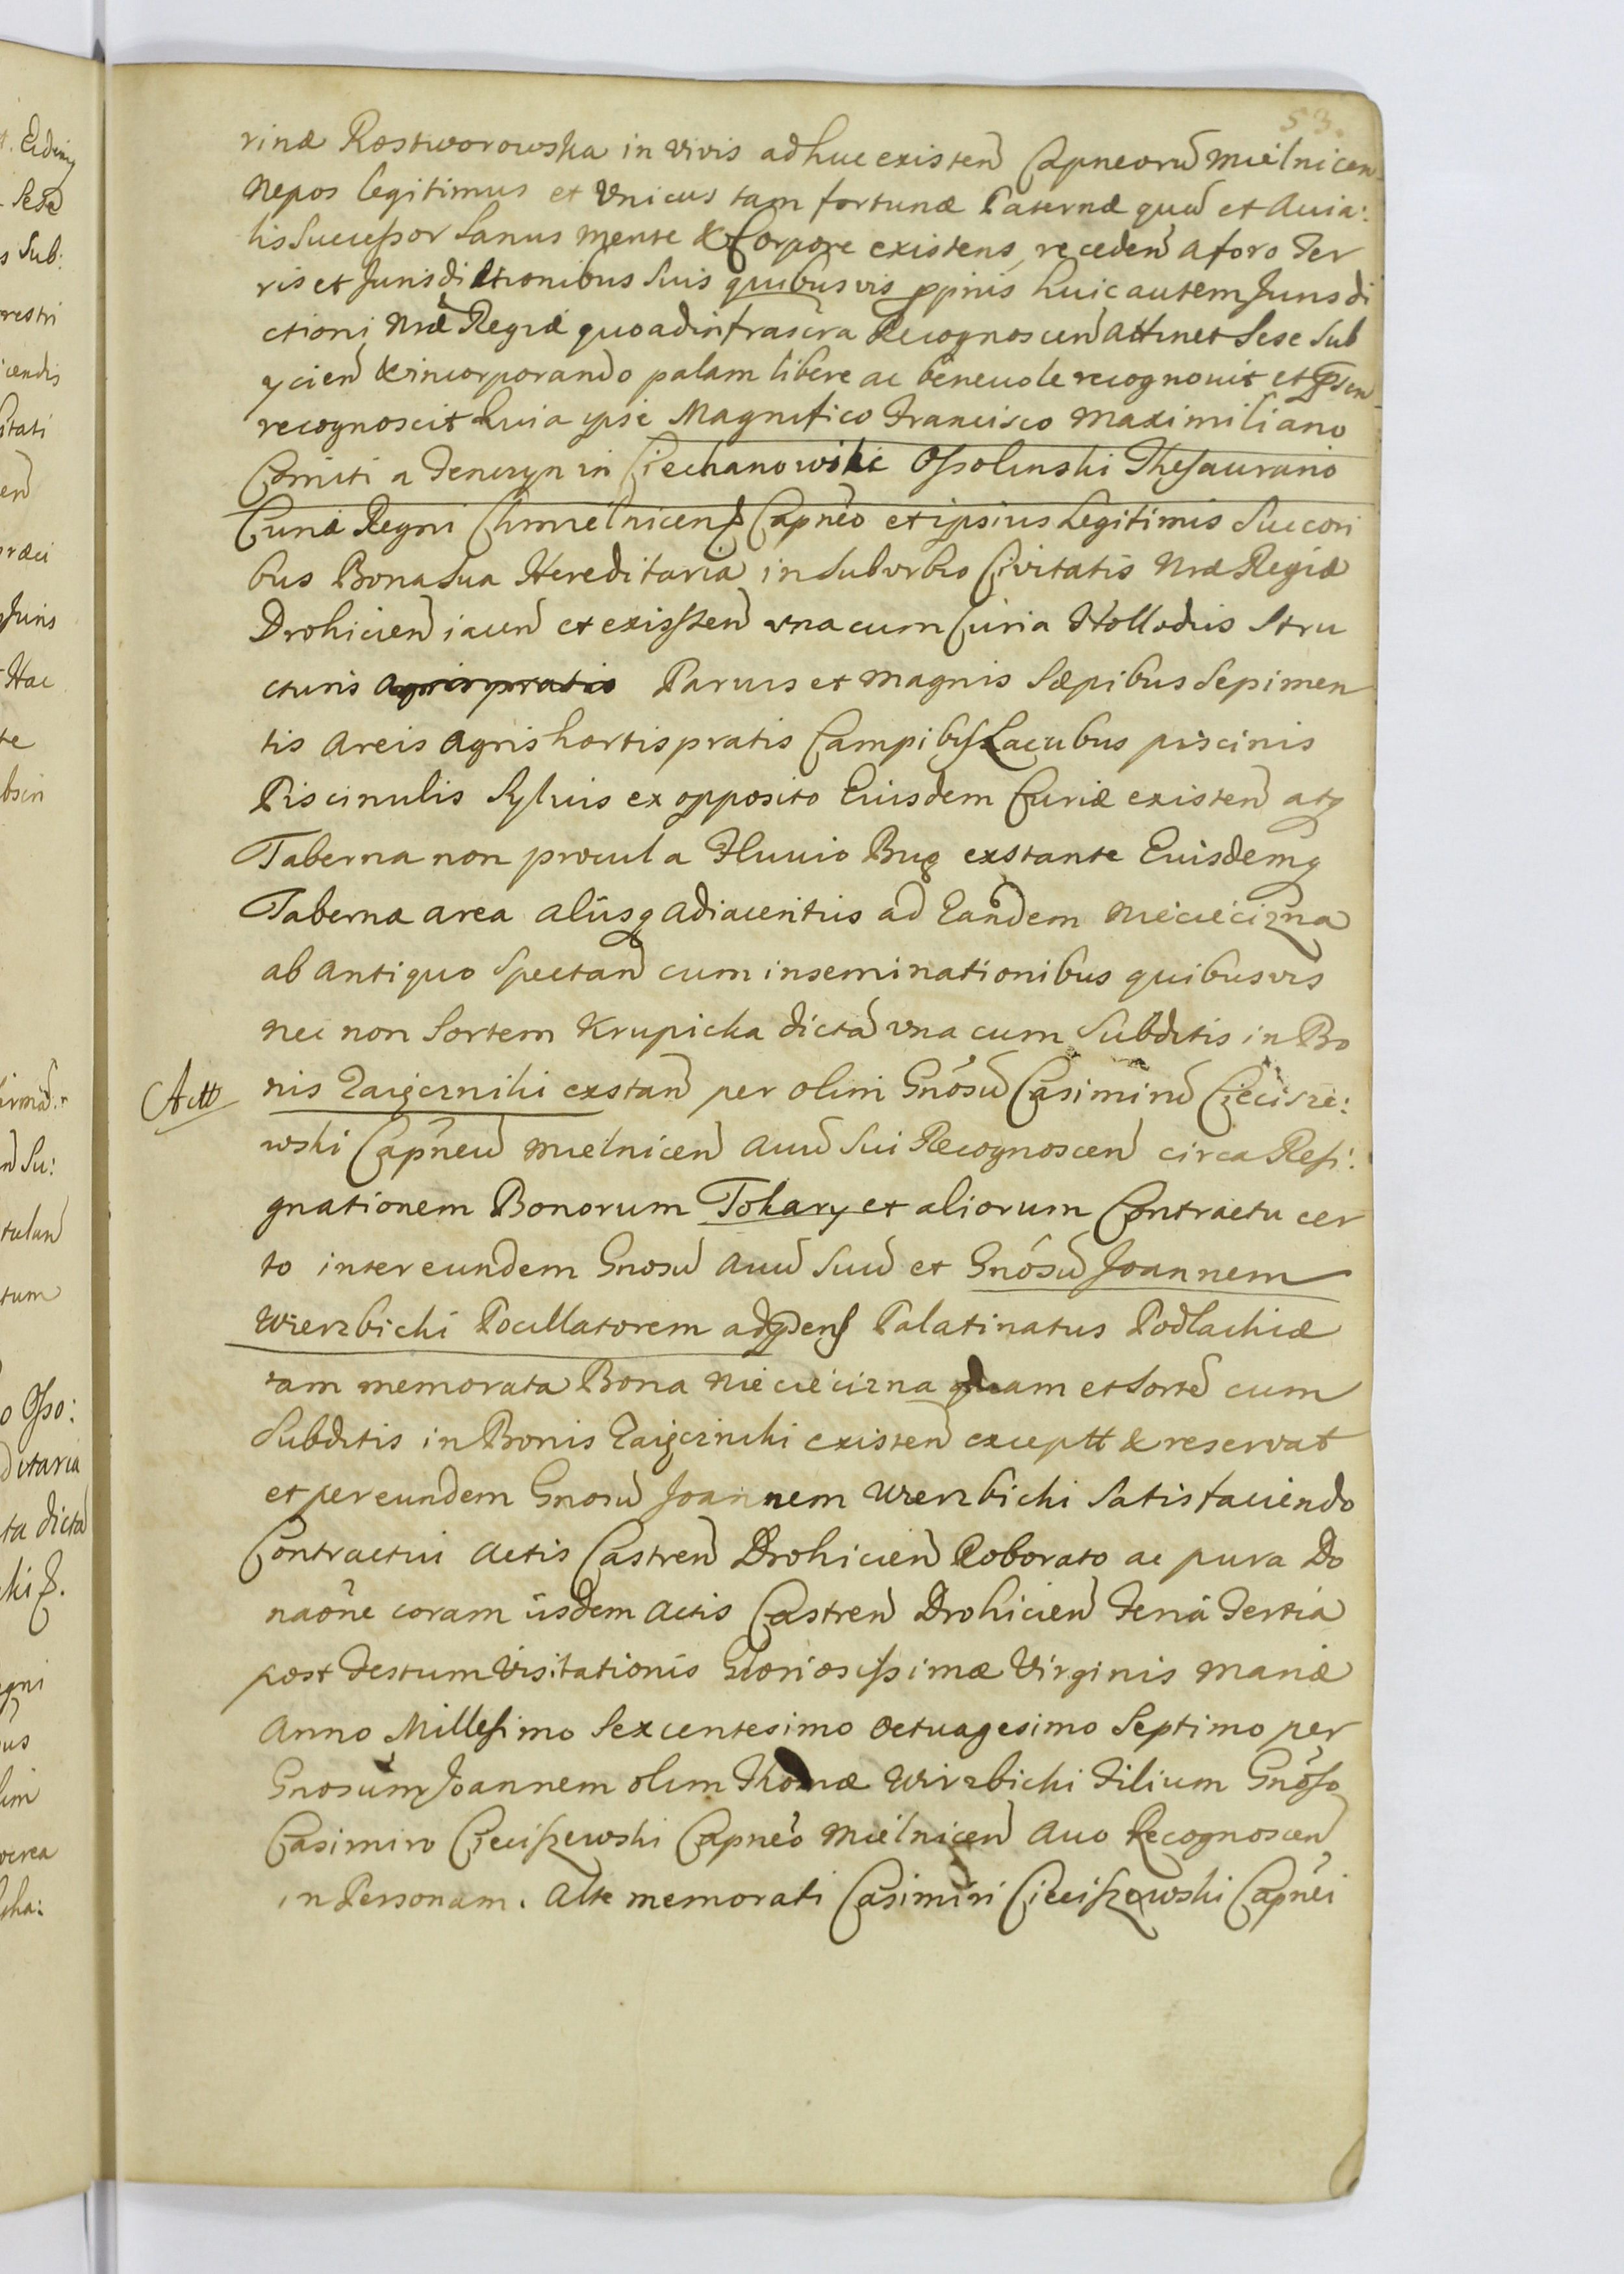 53.
rinæ Rostworowska in vivis adhuc existen Capneorū Mielnicen
Nepos legitimus et Vnicus tam fortunæ Paternæ quā et Auia:
lis Successor Sanus mente & Corpore existens, receden a foro Ter
ris et Jurisdictionibus Suis quibusvis ppriis huic autem Jurisdi
ctioni Nræ Regiæ quoad infrascra Recognoscen attinet Sese Sub
ycien & incorporando palam libere ac beneuole recognouit et pnsen
recognoscit quia ipse Magnifico Francisco Maximiliano
Comiti a Tenczyn in Ciechanowiec Ossolinski Thesaurario
Curiæ Regni Chmielnicens Capneo et ipsius Legitimis Succori
bus Bona sua Hereditaria in Suburbio Civitatis Nræ Regiæ
Drohicien iacen et existen vna cum Curia Hollodiis Stru
cturis agris pratis Paruis et magnis Sæpibus Sepimen
tis areis agris hortis pratis Campibus Lacubus piscinis
Piscinulis Syluis ex opposito Eiusdem Curiæ existen atq
Taberna non procul a Fluuio Bug exstante Eiusdemq
Tabernæ area aliisq adiacentiis ad Eandem Nieciecizna
ab antiquo Spectan cum inseminationibus quibusvis
nec non Sortem Krupicka dictā vna cum Subditis in Bo
Actt
nis Zaięczniki exstan per olim Gnosū Casimirū Ciecisze:
wski Capneū Mielnicen auū Sui Recognoscen circa Resi:
gnationem Bonorum Tokary et aliorum Contractu cer
to inter eundem Gnosū Auū Suū et Gnosū Joannem
Wierzbicki Pocillatorem ad pdens Palatinatus Podlachiæ
tam memorata Bona Nieciecizna quam et Sortē cum
Subditis in Bonis Zaięczniki existen exceptt & reservat
et per eundem Gnosū Joannem Wierzbicki Satisfaciendo
Contractui actis Castren Drohicien Roborato ac pura Do
naōne coram iisdem Actis Castren Drohicien Feria Tertia
post Festum Visitationis Gloriosissimæ Virginis Mariæ
Anno Millesimo Sexcentesimo Octuagesimo Septimo per
Gnosum Joannem olim Thomæ Wirzbicki Filium Gnoso
Casimiro Cieciszewski Capneo Mielnicen Auo Recognoscen
in Personam. Alte memorati Casimiri Cieciszewski Capnei